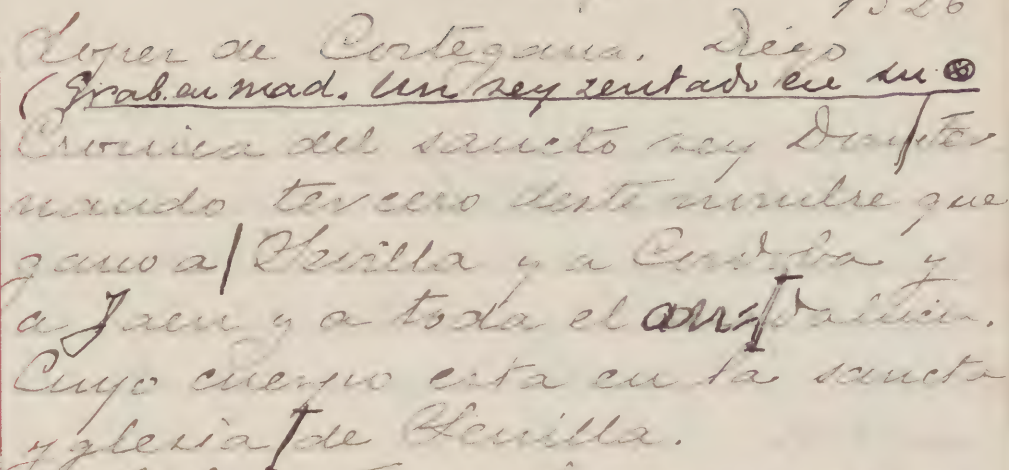 1526
Lopez de Cortegana. Diego
(Grab. en mad. Un rey sentado en su ⊗
Cronica del sancto rey Don/Fer
nando tercero deste nombre que
gano a/Sevilla y a Cordoba y
a Jaen y a toda el an=/dalucia.
Cuyo cuerpo esta en la sancta
yglesia/de Sevilla.